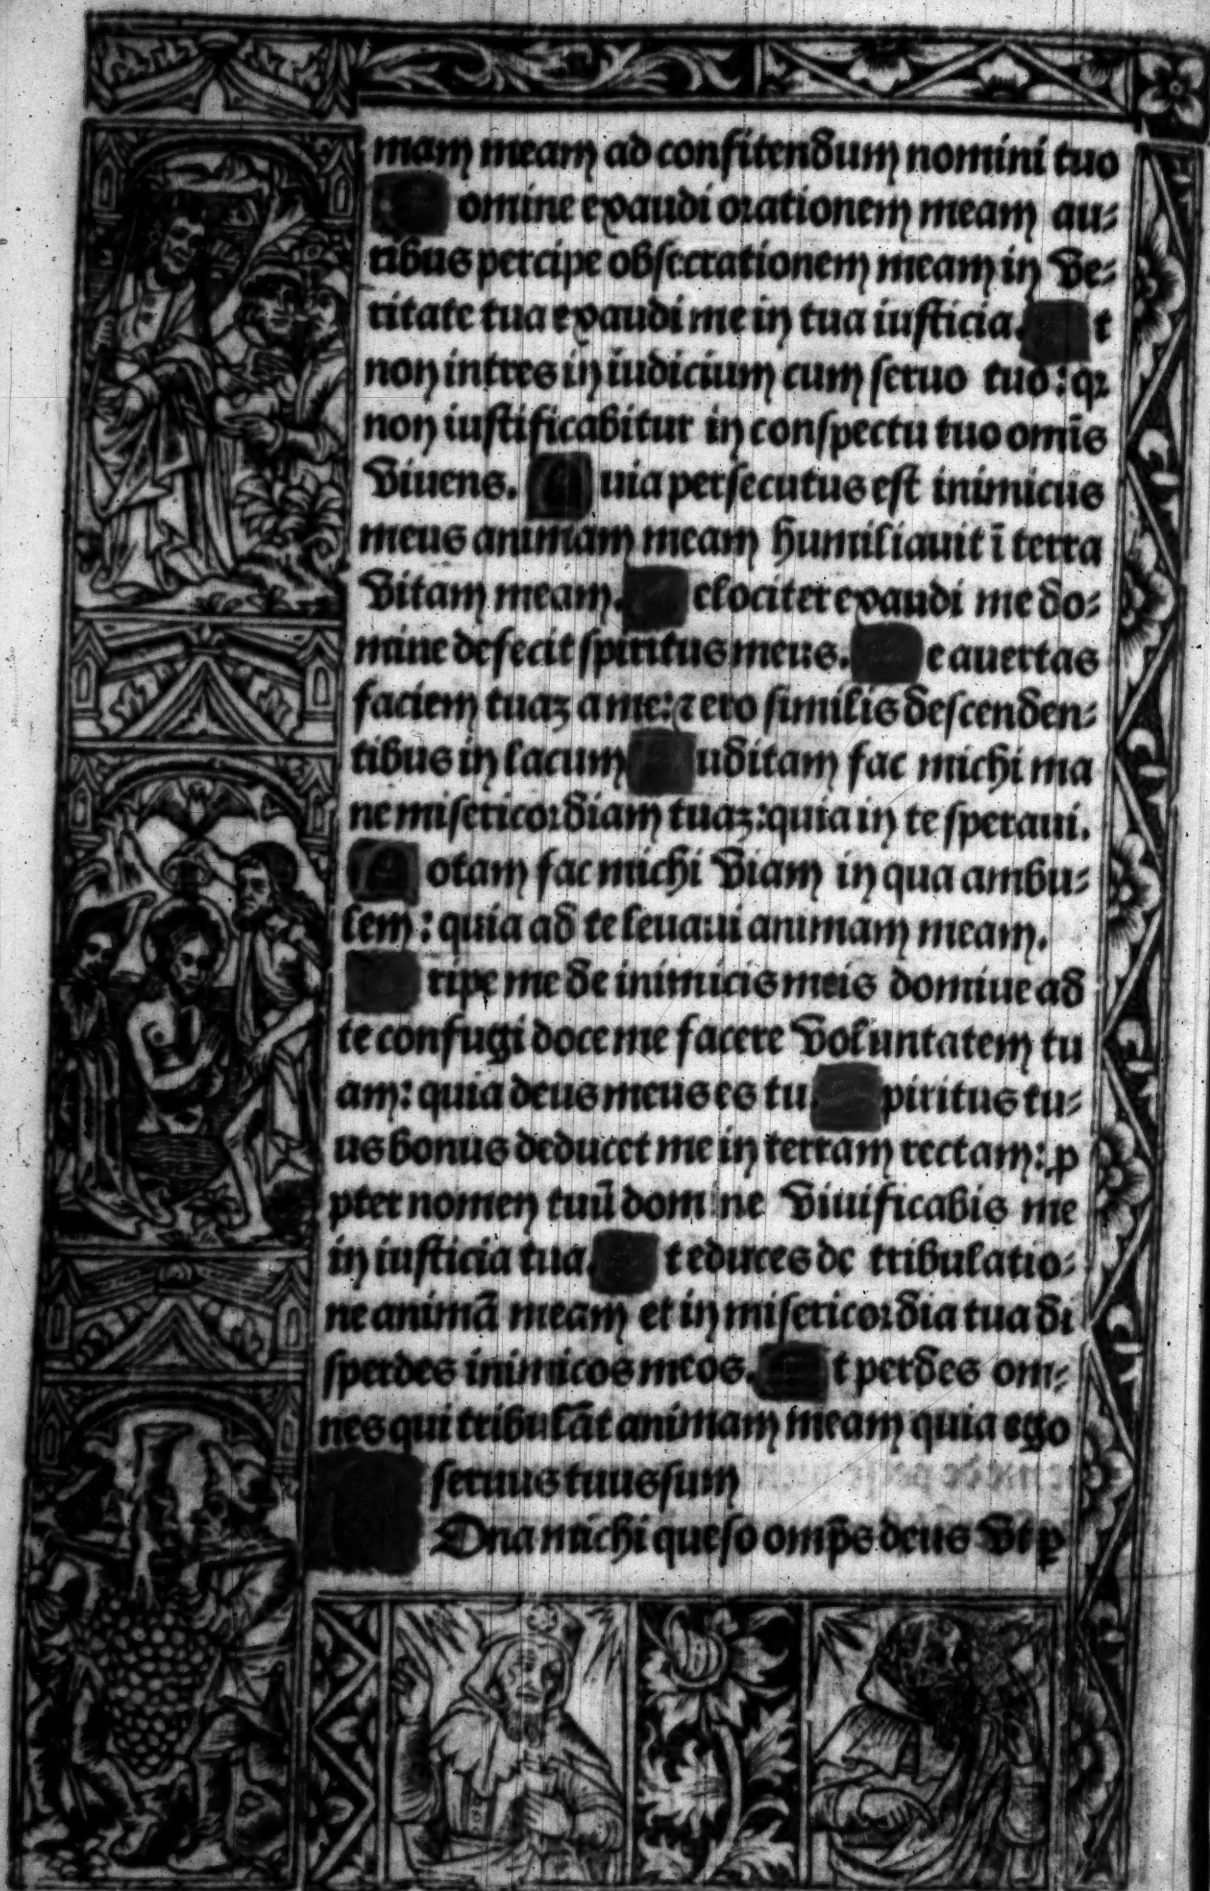 mam meam ad confitendum nomini tuo
omine exaudi orationem meam au-
ribus percipe obsecrationem meam in ve-
ritate tua exaudi me in tua iusticia. t
non intres in iudicium cum seruo tuo: qꝛ
non iustificabitur in conspectu tuo omīs
viuens. uia persecutus est inimicus
meus animam meam humiliauit ī terra
vitam meam. elociter exaudi me do-
mine defecit spiritus meus. e auertas
faciem tuaꝫ a me: ⁊ ero similis descenden-
tibus in lacum uditam fac michi ma
ne misericordiam tuaꝫ: quia in te speraui.
otam fac michi viam in qua ambu-
lem: quia ad te leuaui animam meam.
ripe me de inimicis meis domiue ad
te confugi doce me facere voluntatem tu
am: quia deus meus es tu. piritus tu-
us bonus deducet me in terram rectam: ꝓ
pter nomen tuū domine viuificabis me
in iusticia tua. t educes de tribulatio-
ne animā meam et in misericordia tua di
sperdes inimicos meos. t perdes om-
nes qui tribulāt animam meam quia ego
seruus tuus sum
Ona michi queso omp̄s deus vt ꝑ